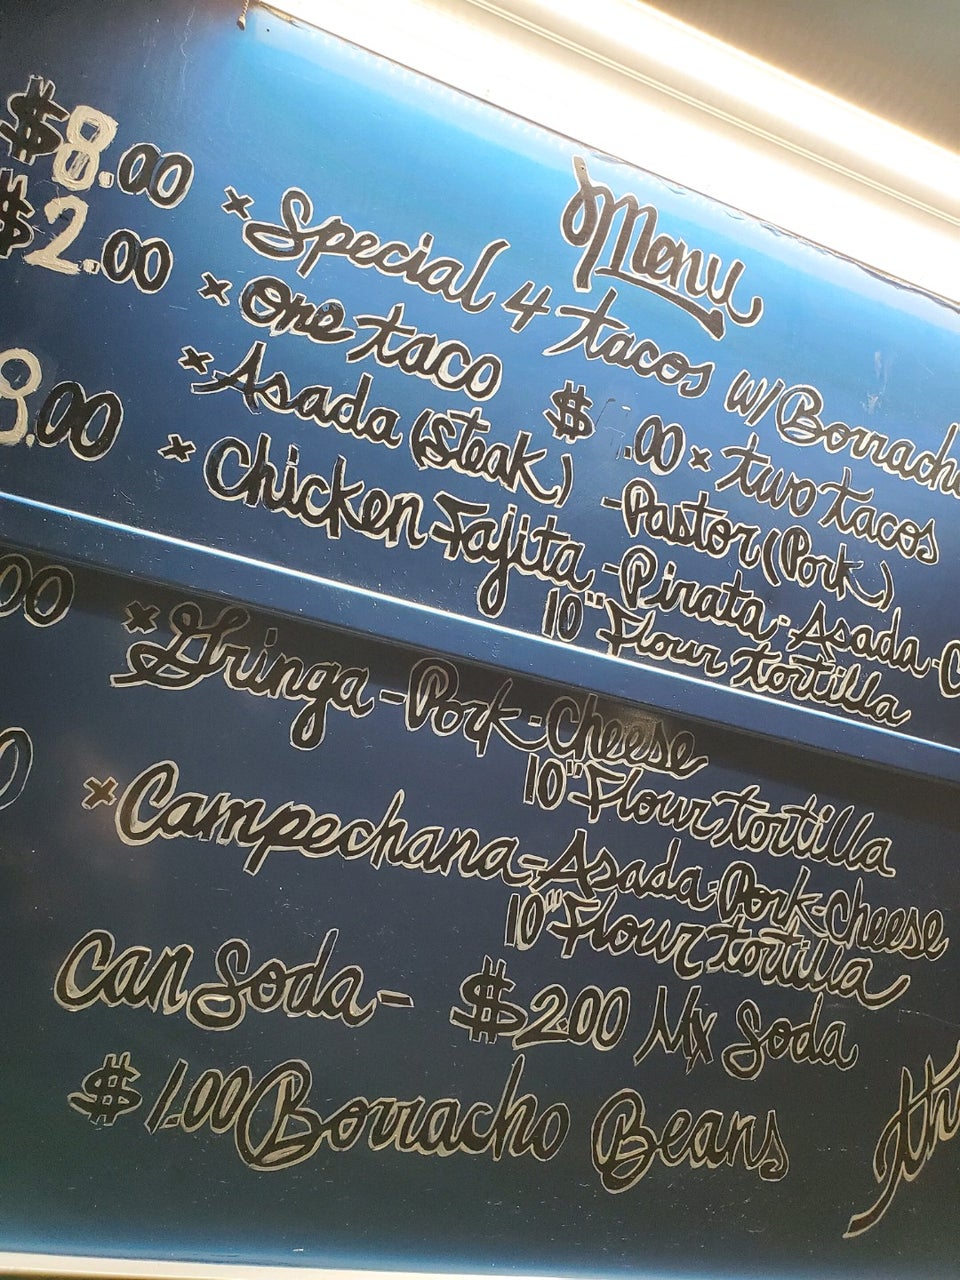 Menu
$8.00 × Special 4 tacos w/Borracho
$2.00 × One taco $ .00 × two tacos
× Asada (steak) - Pastor (Pork)
8.00 × Chicken Fajita - Pirata - Asada - C
10" Flour tortilla
.00 × Gringa - Pork - Cheese
10" Flour tortilla
0 × Campechana - Asada - Pork - Cheese
10" Flour tortilla
Can Soda - $2.00 Mx Soda
$1.00 Borracho Beans